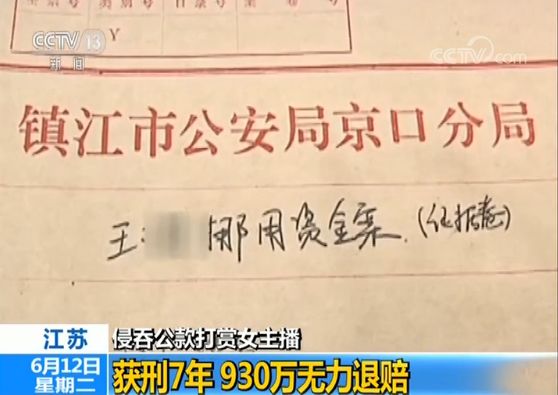 类别号
目录号
案卷号
Y
CCTV 13
新闻
CCTV.com
镇江市公安局京口分局
王: 挪用资金案 (证据卷)
江苏
侵吞公款打赏女主播
6月12日
星期二
获刑7年 930万无力退赔